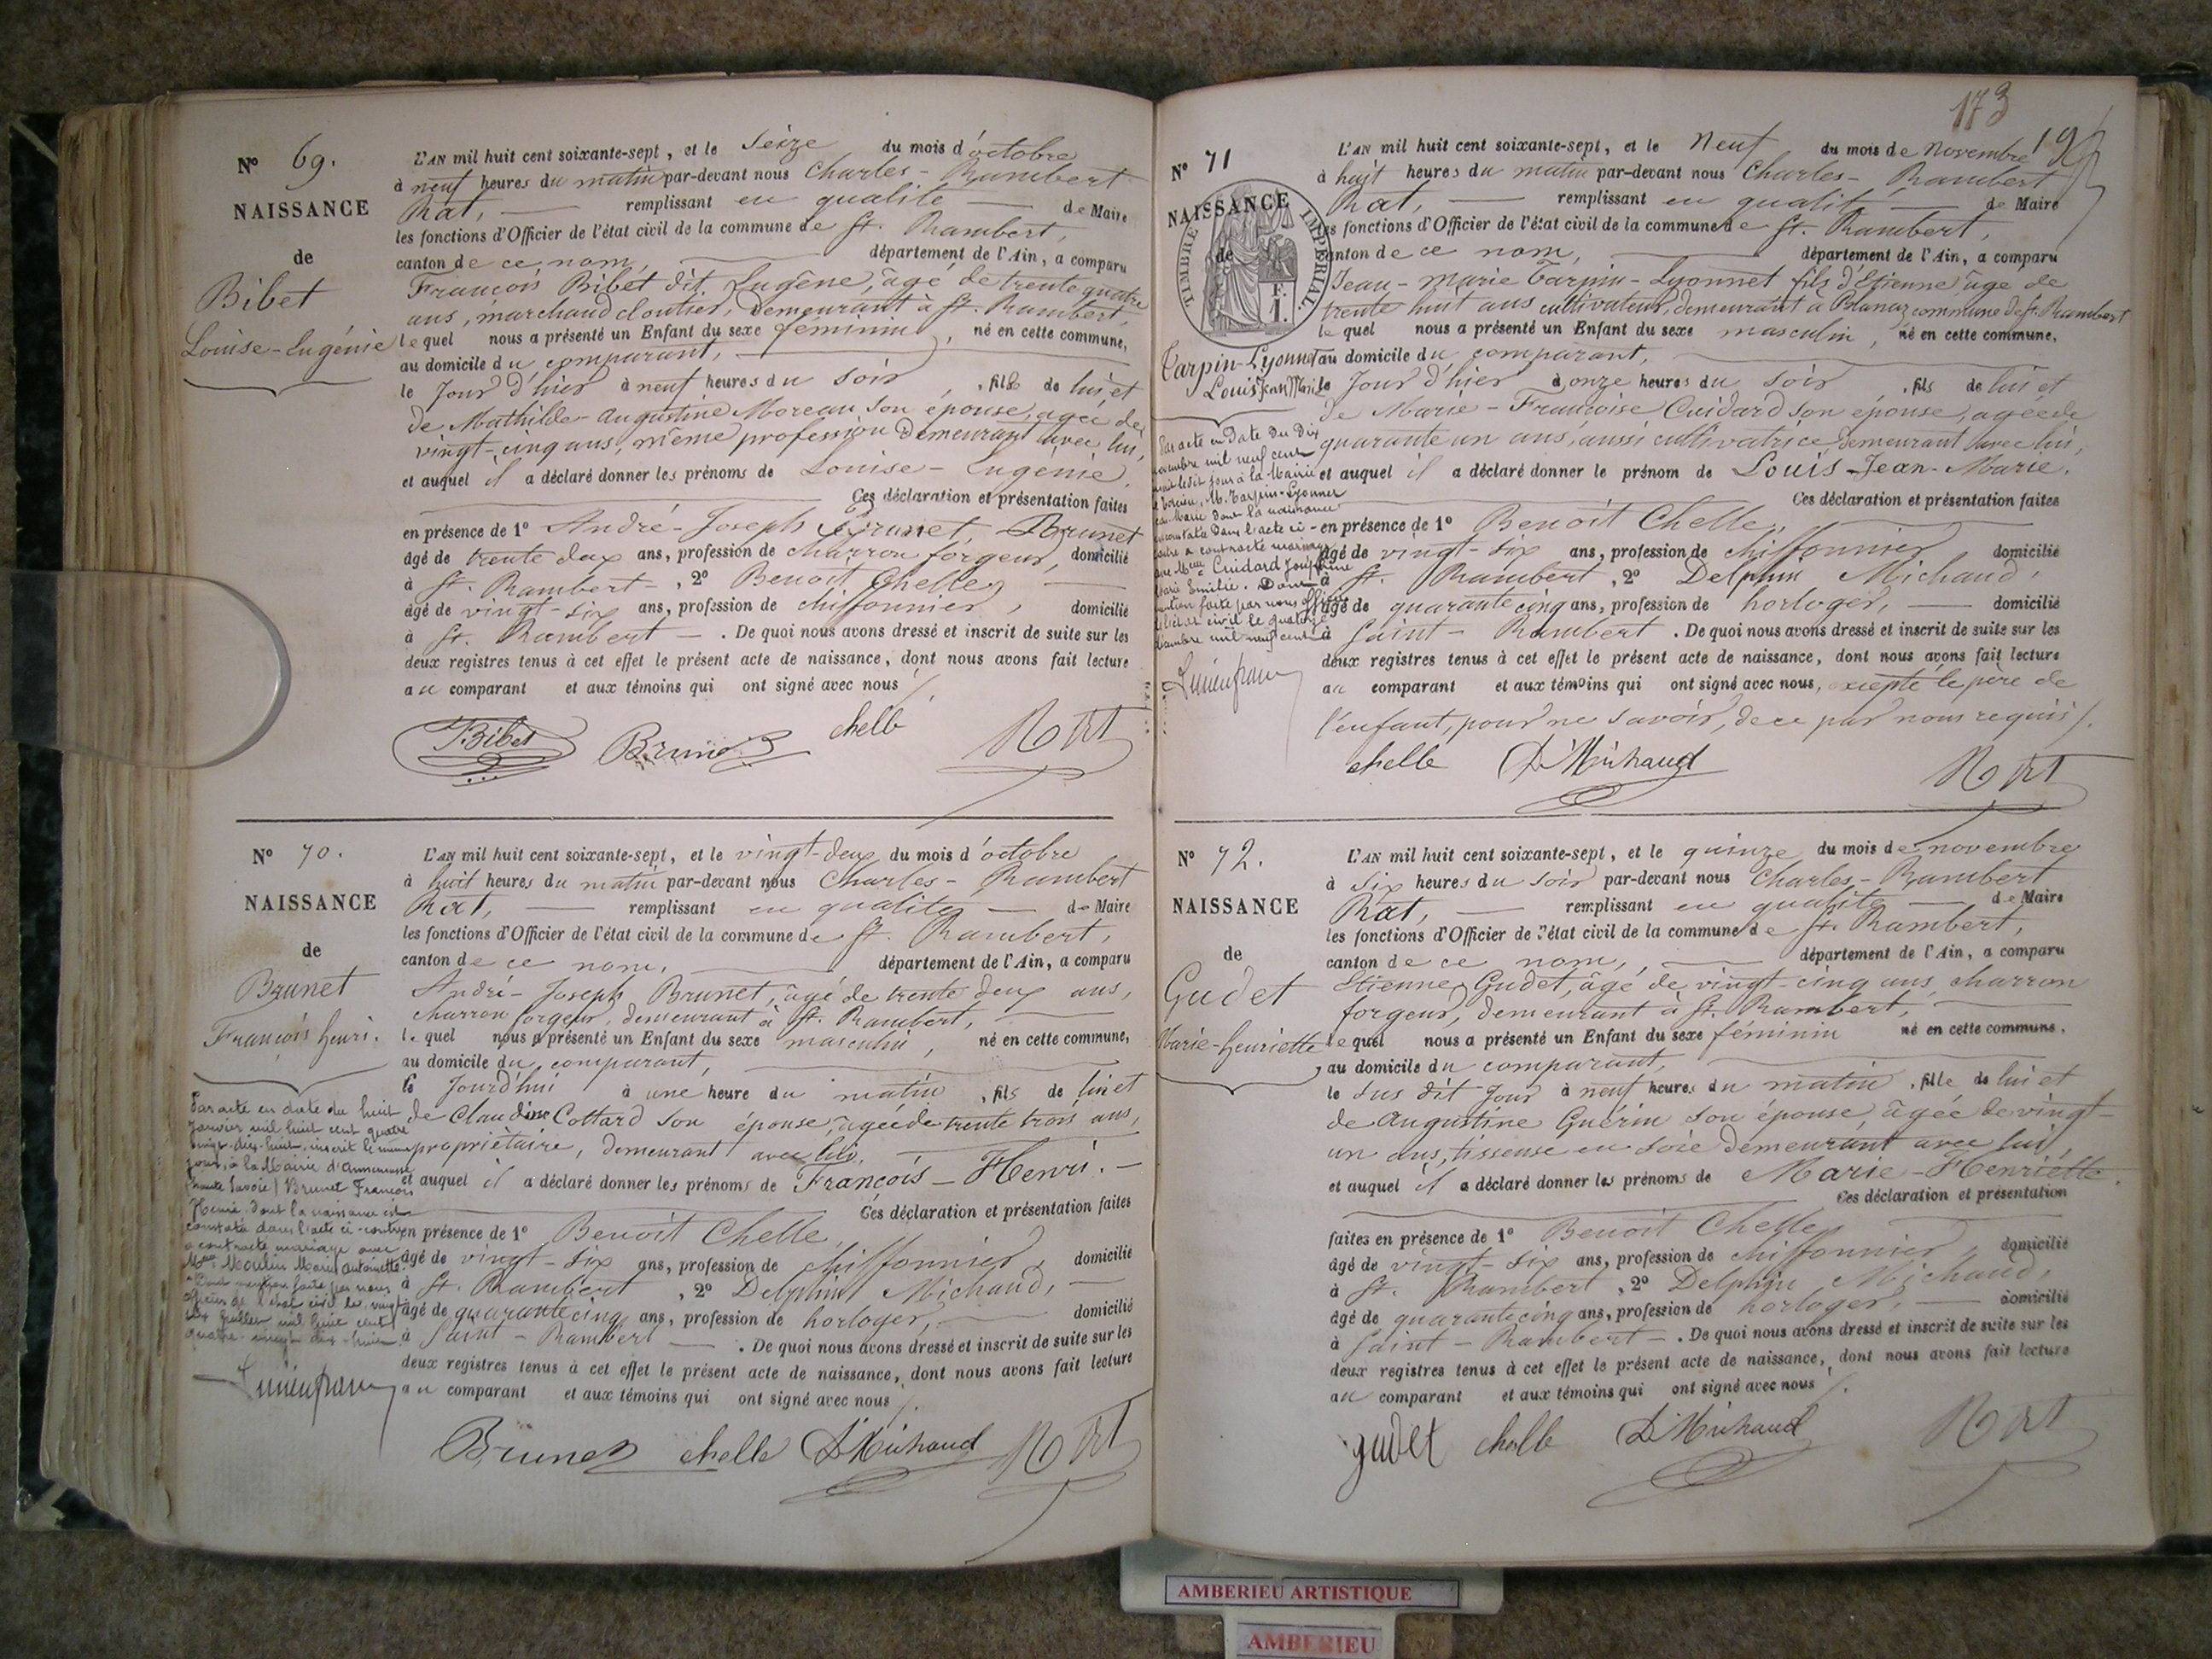 N° 69.
NAISSANCE
de
Bibet
Louise-Eugénie
L'AN mil huit cent soixante-sept, et le Seize du mois d'octobre
à neuf heures du matin par-devant nous Charles-Rambert
Rat, remplissant en qualité de Maire
les fonctions d'Officier de l'état civil de la commune de St. Rambert,
canton de ce nom, département de l'Ain, a comparu
François Bibet dit Eugène, âgé de trente quatre
ans, marchand cloutier, demeurant à St. Rambert,
lequel nous a présenté un Enfant du sexe féminin, né en cette commune,
au domicile du comparant,
le Jour d'hier à neuf heures du soir, fille de lui et
de Mathilde-Augustine Moreau son épouse, agée de
vingt-cinq ans, même profession demeurant avec lui,
et auquel il a déclaré donner les prénoms de Louise-Eugénie.
Ces déclaration et présentation faites
en présence de 1° André-Joseph Brunet
âgé de trente deux ans, profession de charron forgeur, domicilié
à St. Rambert, 2° Benoit Chelle,
âgé de vingt-six ans, profession de chiffonnier, domicilié
à St. Rambert. De quoi nous avons dressé et inscrit de suite sur les
deux registres tenus à cet effet le présent acte de naissance, dont nous avons fait lecture
au comparant et aux témoins qui ont signé avec nous.
Bibet Brunet chelle Rat
N° 70.
NAISSANCE
de
Brunet
François Henri.
L'AN mil huit cent soixante-sept, et le vingt-deux du mois d'octobre
à huit heures du matin par-devant nous Charles-Rambert
Rat, remplissant en qualité de Maire
les fonctions d'Officier de l'état civil de la commune de St. Rambert,
canton de ce nom, département de l'Ain, a comparu
André-Joseph Brunet, âgé de trente deux ans,
charron forgeur, demeurant à St. Rambert,
lequel nous a présenté un Enfant du sexe masculin, né en cette commune,
au domicile du comparant,
le Jourd'hui à une heure du matin, fils de lui et
de Claudine Cottard son épouse, âgée de trente trois ans,
propriétaire, demeurant avec lui.
et auquel il a déclaré donner les prénoms de François-Henri.
Ces déclaration et présentation faites
en présence de 1° Benoit Chelle,
âgé de vingt-six ans, profession de chiffonnier, domicilié
à St. Rambert, 2° Delphin Michaud,
âgé de quarante cinq ans, profession de horloger, domicilié
à Saint-Rambert. De quoi nous avons dressé et inscrit de suite sur les
deux registres tenus à cet effet le présent acte de naissance, dont nous avons fait lecture
au comparant et aux témoins qui ont signé avec nous.
Par acte en date du huit
Janvier mil huit cent quatre
vingt-dix-huit, inscrit le même
jour, à la Mairie d'Annemasse
(Haute Savoie) Brunet François
Henri dont la naissance est
constatée dans l'acte ci-contre
a contracté mariage avec
Melle Moulin Marie Antoinette.
Dont mention faite par nous
officier de l'état civil le vingt
six juillet mil huit cent
quatre-vingt dix-huit.
Brunet chelle D. Michaud Rat
173
N° 71
NAISSANCE
de
TIMBRE IMPÉRIAL
1 F.
Tarpin-Lyonnet
Louis Jean Marie
L'AN mil huit cent soixante-sept, et le Neuf du mois de Novembre
à huit heures du matin par-devant nous Charles-Rambert
Rat, remplissant en qualité de Maire
les fonctions d'Officier de l'état civil de la commune de St. Rambert,
canton de ce nom, département de l'Ain, a comparu
Jean-Marie Tarpin-Lyonnet fils d'Etienne âge de
trente huit ans cultivateur, demeurant à Blanaz commune de St. Rambert
lequel nous a présenté un Enfant du sexe masculin, né en cette commune,
au domicile du comparant,
le Jour d'hier à onze heures du soir, fils de lui et
de Marie-Françoise Cuidard son épouse, agée de
quarante un ans, aussi cultivatrice, demeurant avec lui,
et auquel il a déclaré donner le prénom de Louis-Jean-Marie.
Ces déclaration et présentation faites
en présence de 1° Benoit Chelle,
âgé de vingt-six ans, profession de chiffonnier, domicilié
à St. Rambert, 2° Delphin Michaud,
âgé de quarante cinq ans, profession de horloger, domicilié
à Saint-Rambert. De quoi nous avons dressé et inscrit de suite sur les
deux registres tenus à cet effet le présent acte de naissance, dont nous avons fait lecture
au comparant et aux témoins qui ont signé avec nous, excepté le père de
l'enfant, pour ne savoir, de ce par nous requis.
Par acte en date du dix
novembre mil neuf cent
inscrit le dit jour à la Mairie
M. Tarpin-Lyonnet
Jean Marie dont la naissance
est constatée dans l'acte ci-
contre a contracté mariage
avec Melle Cuidard Joséphine
Marie Emilie. Dont
mention faite par nous officier
de l'état civil le quatorze
décembre mil neuf cent
chelle D. Michaud Rat
N° 72.
NAISSANCE
de
Gudet
Marie-Henriette
L'AN mil huit cent soixante-sept, et le quinze du mois de novembre
à Six heures du soir par-devant nous Charles-Rambert
Rat, remplissant en qualité de Maire
les fonctions d'Officier de l'état civil de la commune de St. Rambert,
canton de ce nom, département de l'Ain, a comparu
Etienne Gudet, âgé de vingt-cinq ans, charron
forgeur, demeurant à St. Rambert,
lequel nous a présenté un Enfant du sexe féminin né en cette commune,
au domicile du comparant,
le susdit Jour à neuf heures du matin, fille de lui et
de Augustine Guérin son épouse, âgée de vingt-
un ans, tisseuse en soie demeurant avec lui,
et auquel il a déclaré donner les prénoms de Marie-Henriette.
Ces déclaration et présentation
faites en présence de 1° Benoit Chelle,
âgé de vingt-six ans, profession de chiffonnier, domicilié
à St. Rambert, 2° Delphin Michaud,
âgé de quarante cinq ans, profession de horloger, domicilié
à Saint-Rambert. De quoi nous avons dressé et inscrit de suite sur les
deux registres tenus à cet effet le présent acte de naissance, dont nous avons fait lecture
au comparant et aux témoins qui ont signé avec nous.
gudet chelle D. Michaud Rat
AMBERIEU ARTISTIQUE
AMBERIEU